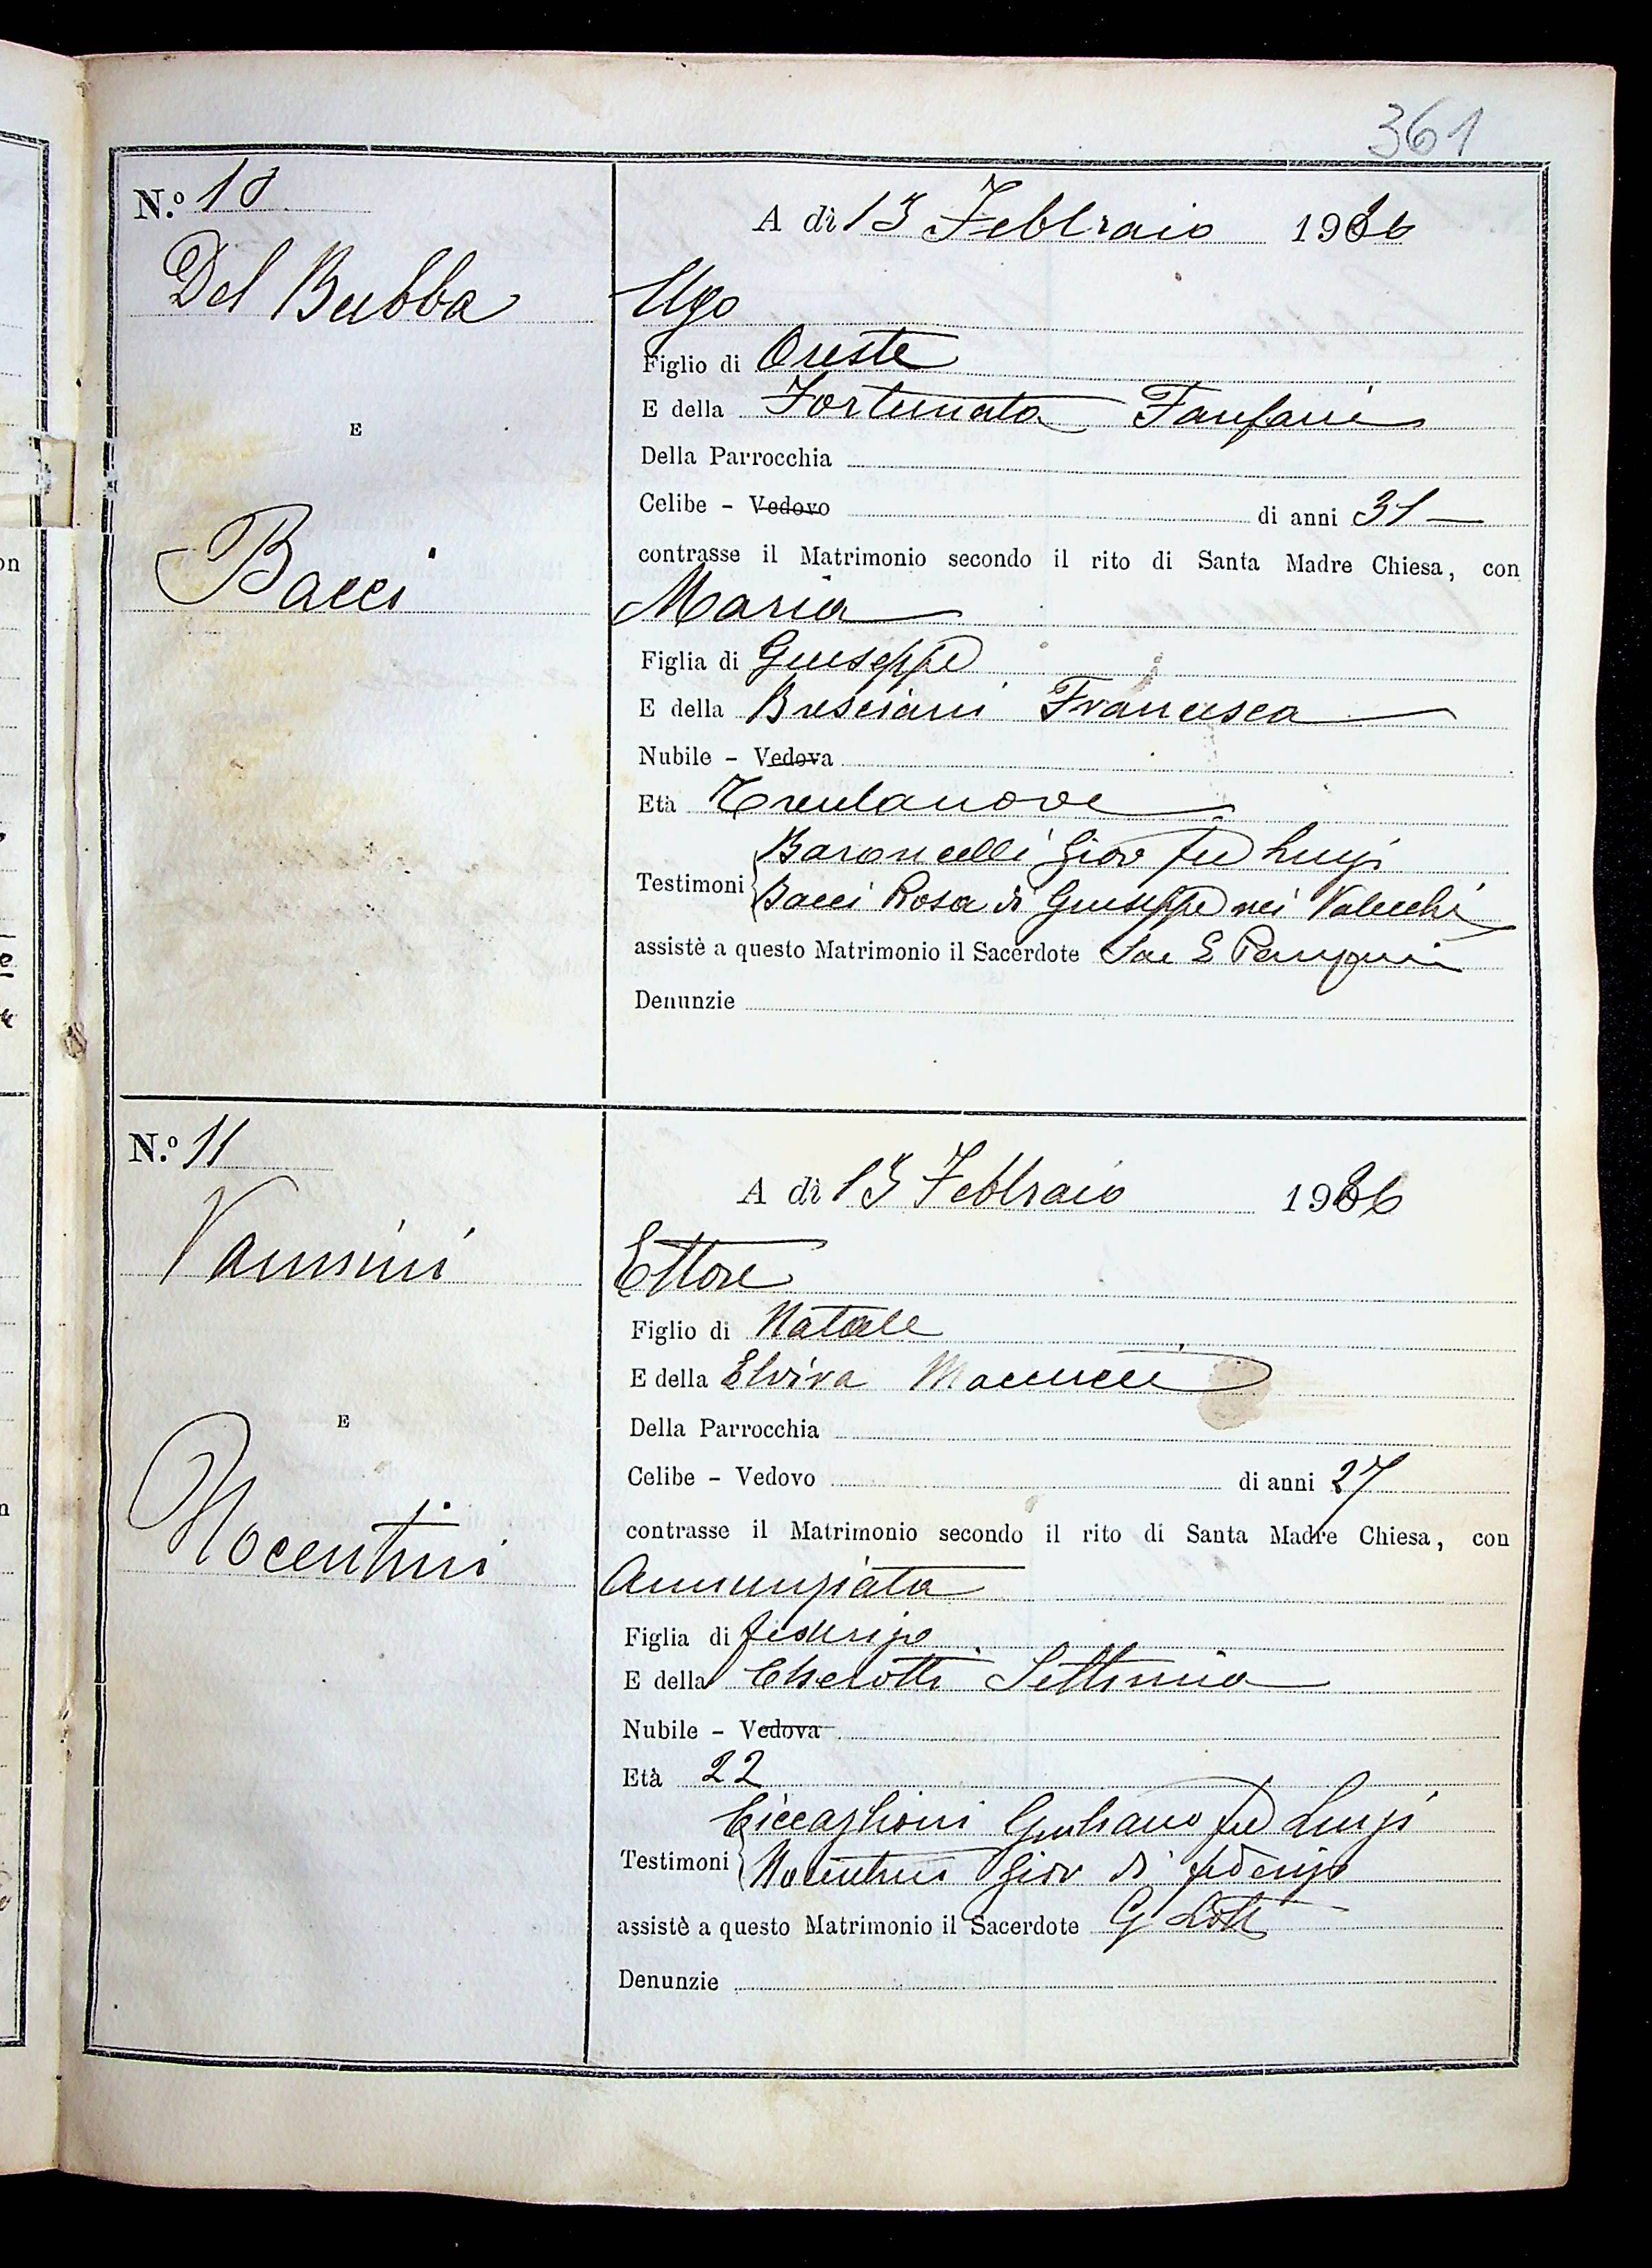 361
N.º 10
A dì 13 Febbraio 1926
Del Bubba
Ugo
Figlio di Oreste
E della Fortunata Fanfani
Della Parrocchia
E
Celibe - Vedovo di anni 31
contrasse il Matrimonio secondo il rito di Santa Madre Chiesa, con
Bacci
Maria
Figlia di Giuseppe
E della Bresciani Francesca
Nubile - Vedova
Età Trentanove
Baroncelli Giov fu Luigi
Testimoni
Bacci Rosa di Giuseppe nei Valecchi
assistè a questo Matrimonio il Sacerdote Sac E
Denunzie
N.º 11
A dì 13 Febbraio 1926
Vannini
Ettore
Figlio di Natale
E della Elvira
E
Della Parrocchia
Celibe - Vedovo di anni 27
contrasse il Matrimonio secondo il rito di Santa Madre Chiesa, con
Nocentini
Annunziata
Figlia di Federigo
E della Settimia
Nubile - Vedova
Età 22
Giuliano fu Luigi
Testimoni
Nocentini Giov di Federigo
assistè a questo Matrimonio il Sacerdote G Lotti
Denunzie